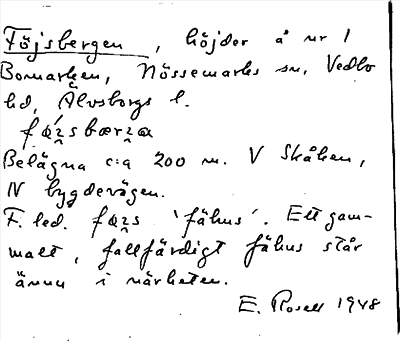 Föjsbergen, höjder å nr 1
Bomarken, Nössemarks sn, Vedbo
hd, Älvsborgs l.
Belägna c:a 200 m. V Skåken,
N bygdevägen.
F. led. 'fähus'. Ett gam-
malt, fallfärdigt fähus står
ännu i närheten.
E. Rosell 1948